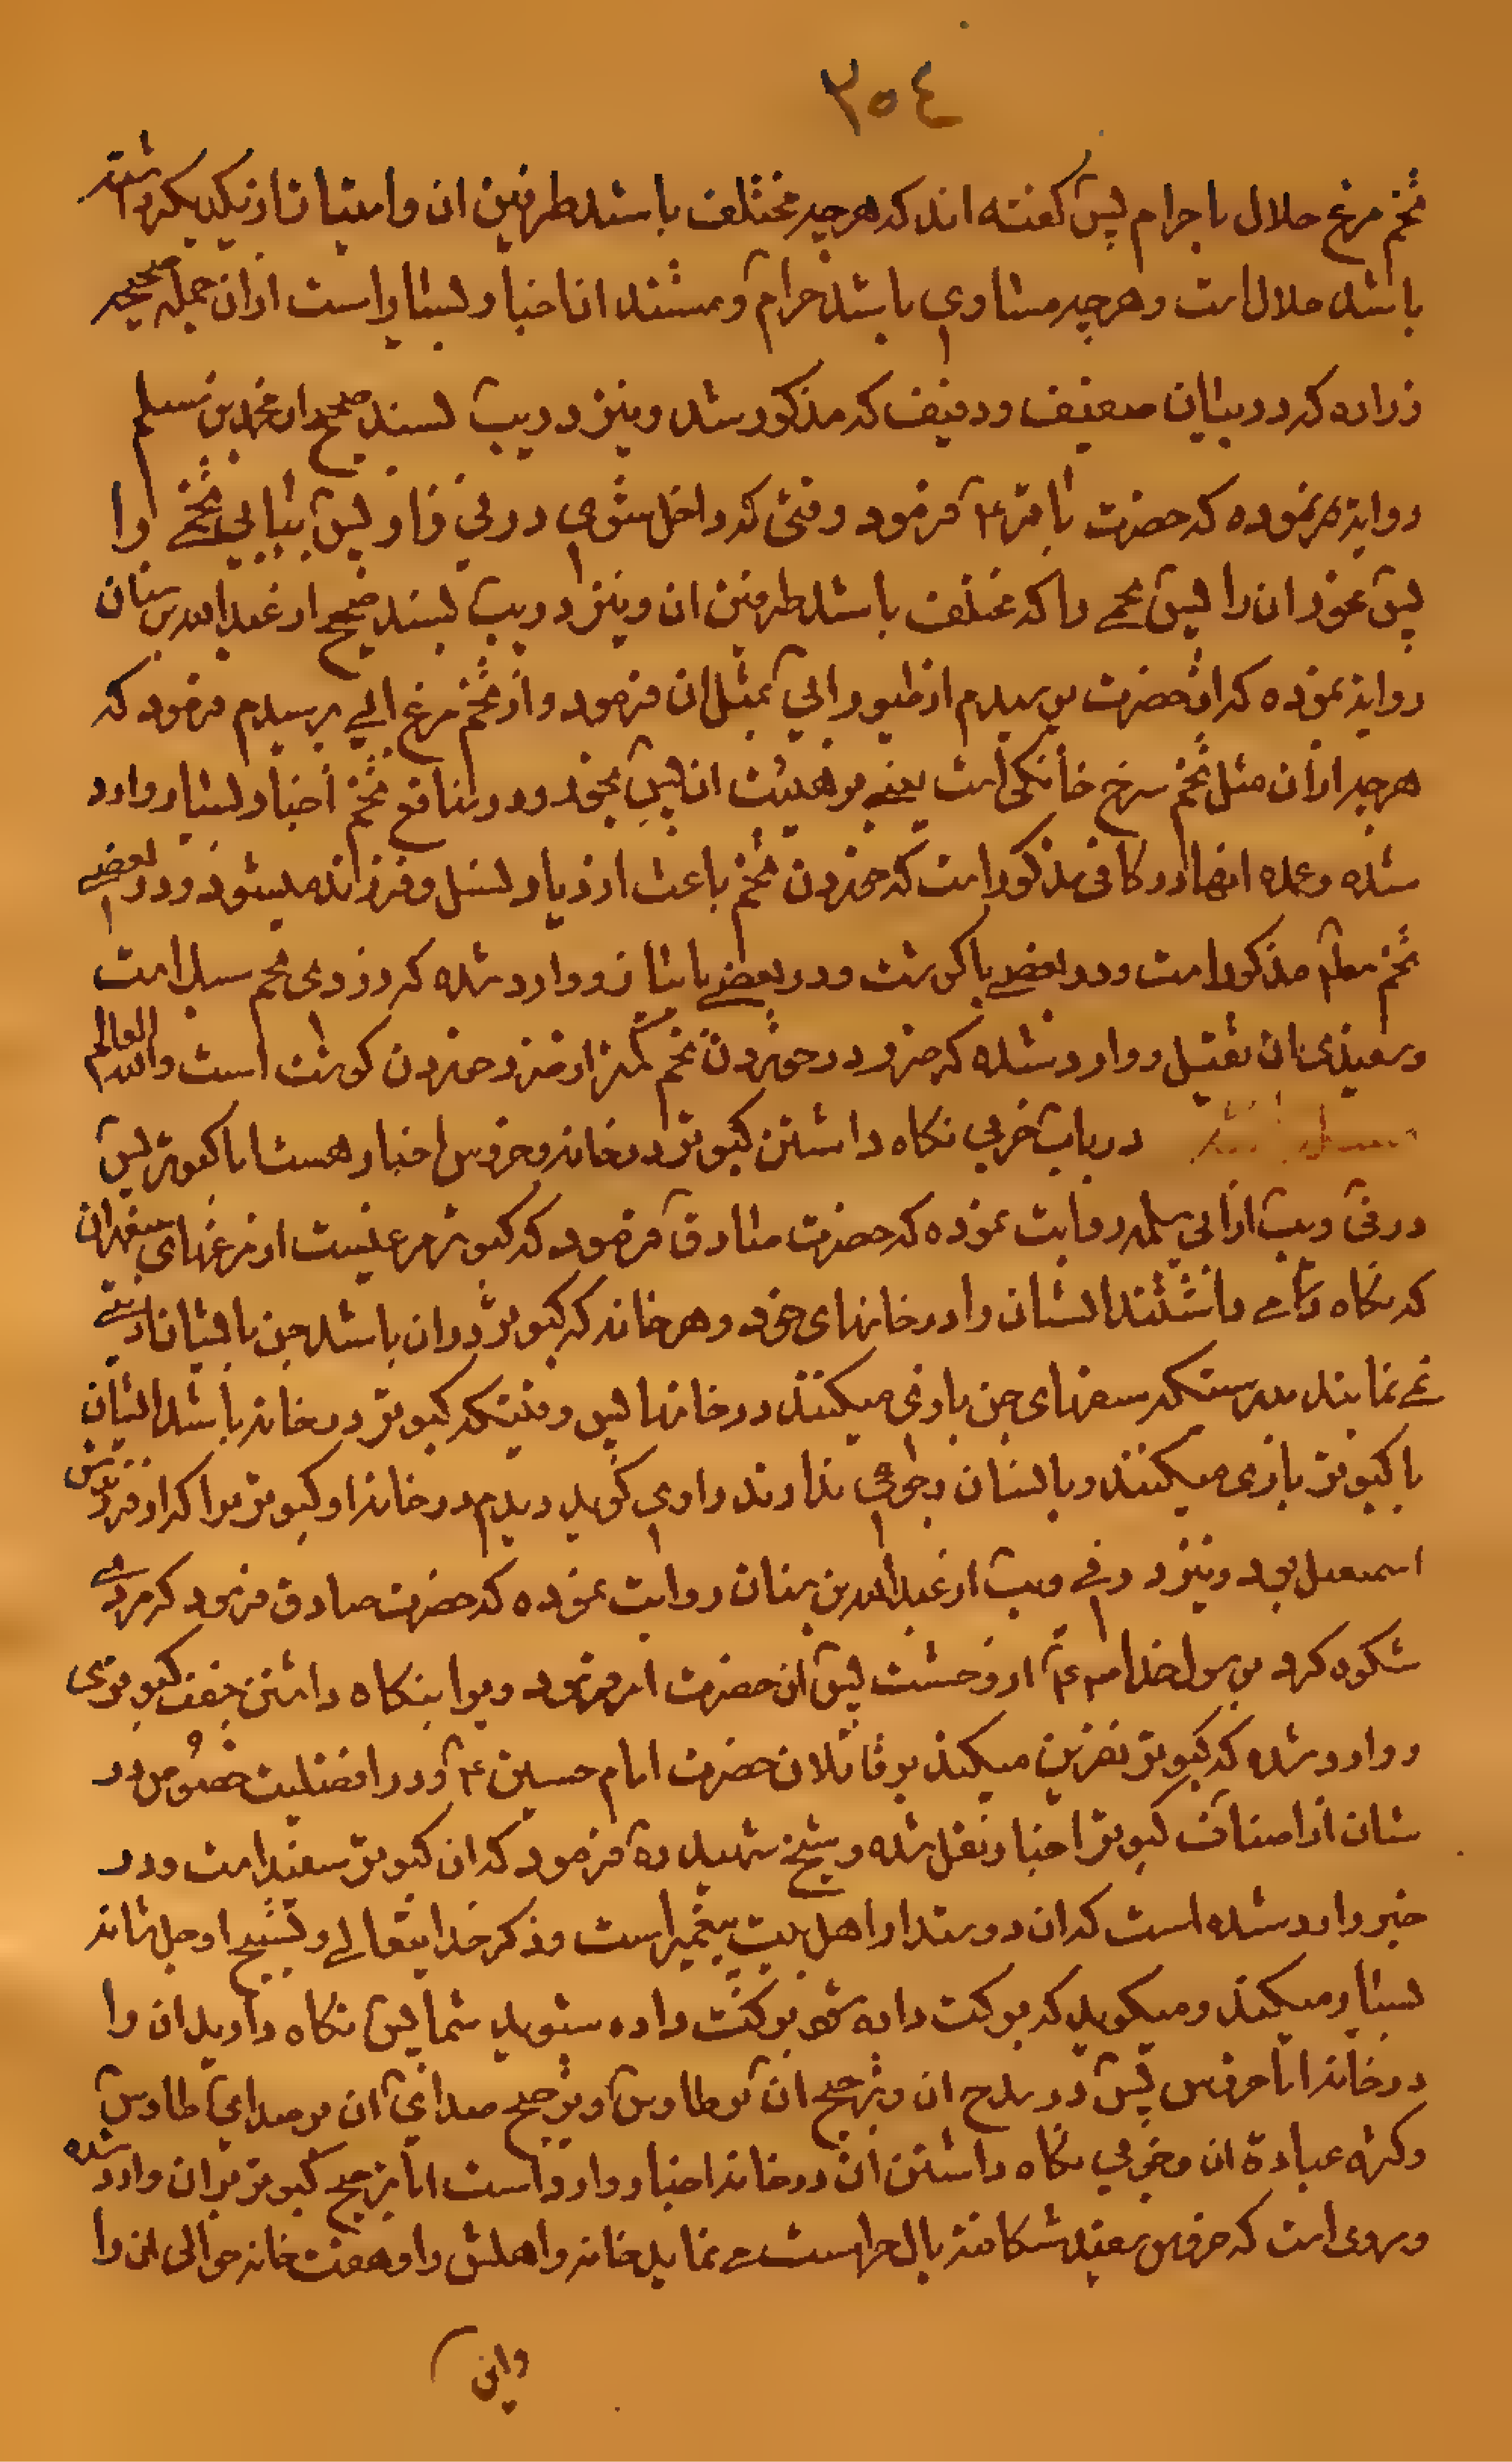 ٣٥٤
تخم مرغ حلال با حرام پس گفته اند که هرچه مختلف باشد طرفین آن و امتیاز از یکدیگر داشته
باشد حلال است و هرچه مساوی باشد حرام و مستند آن اخبار بسیار است از آن جمله صحیحه
زراره که در بیان صفیف و دفیف که مذکور شد و نیز در یب بسند صحیح از محمد بن مسلم
روایة نموده که حضرت باقر ع فرمود وقتی که داخل شوی در نی زار پس بیابی تخمی را
پس مخور آن را پس تخمی را که مختلف باشد طرفین آن و نیز در یب بسند صحیح از عبد الله بن سنان
روایة نموده که از حضرت پرسیدم از طیور ابی بمثل آن فرمود و از تخم مرغ ابی پرسیدم فرمود که
هرچه از آن مثل تخم مرغ خانگی است یعنی بر هیئت آن پس بخور و در منافع تخم اخبار بسیار وارد
شده و عمده انها در کافی مذکور است که خوردن تخم باعث ازدیاد نسل و فرزند میشود و در بعضی
تخم مذکور است و در بعضی با گوشت و در بعضی با پیاز و وارد شده که زردی تخم سبک است
و سفیدی آن ثقیل و وارد شده که ضرر در خوردن تخم کمتر از ضرر خوردن گوشت است والله العالم
در باب خوبی نگاه داشتن کبوتر در خانه و خروس اخبار هست اما کبوتر پس
در فی و یب از ابی سلمه روایت نموده که حضرت صادق فرمود که کبوتر مرغیست از مرغهای پیغمبران
که نگاه می داشتند ایشان را در خانهای خود و هر خانه که کبوتر در آن باشد جن بایشان اذیتی
نمی نمایند بدرستیکه سفهای جن بازی میکنند در خانها پس وقتیکه کبوتر در خانه باشد ایشان
با کبوتر بازی میکنند و بایشان رجوعی ندارند راوی گوید دیدم در خانه او کبوتر برا که از فرزندش
اسمعیل بود و نیز در فی و یب از عبد الله بن سنان روایت نموده که حضرت صادق فرمود که مردی
شکوه کرد برسول خدا از وحشت پس آن حضرت امر فرمود ویرا بنگاه داشتن جفت کبوتری
و وارد شده که کبوتر نفرین میکند بر قاتلان حضرت امام حسین ع و در افضلیت خصوص در
شان از اصناف کبوتر اخبار نقل شده و شیخ شهید ره فرمود که آن کبوتر سفید است و در
خبر وارد شده است که آن دوستدار اهل بیت پیغمبر است و ذکر خدایتعالی و تسبیح او جل شانه
بسیار میکند و میگوید که برکت داده شوید شما پس نگاه دارید آن را
در خانه اما خروس پس در مدح آن و ترجیح آن بر طاوس و ترجیح صدای آن بر صدای طاوس
و کثره عبادة آن و خوبی نگاه داشتن آن در خانه اخبار وارد است اما ترجیح کبوتر بر آن وارد شده
و مروی است که خروس سفید شکافته بال حراست می نماید خانه و اهلش را و هفت خانه حوالی آن را
واین